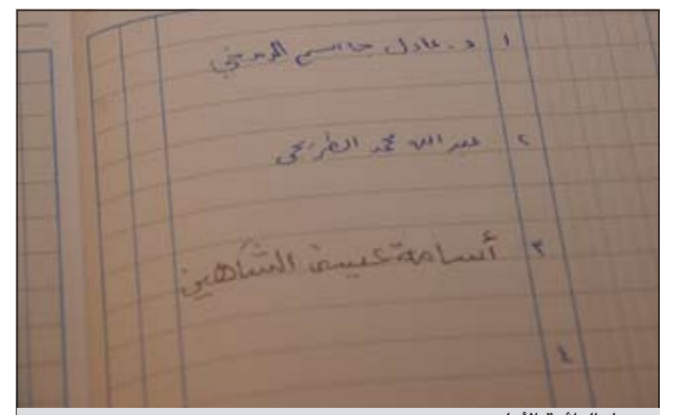 ١ د. عادل جاسم الدمخي
٢ عبدالله محمد الطريجي
٣ أسامة عيسى الشاهين
٤